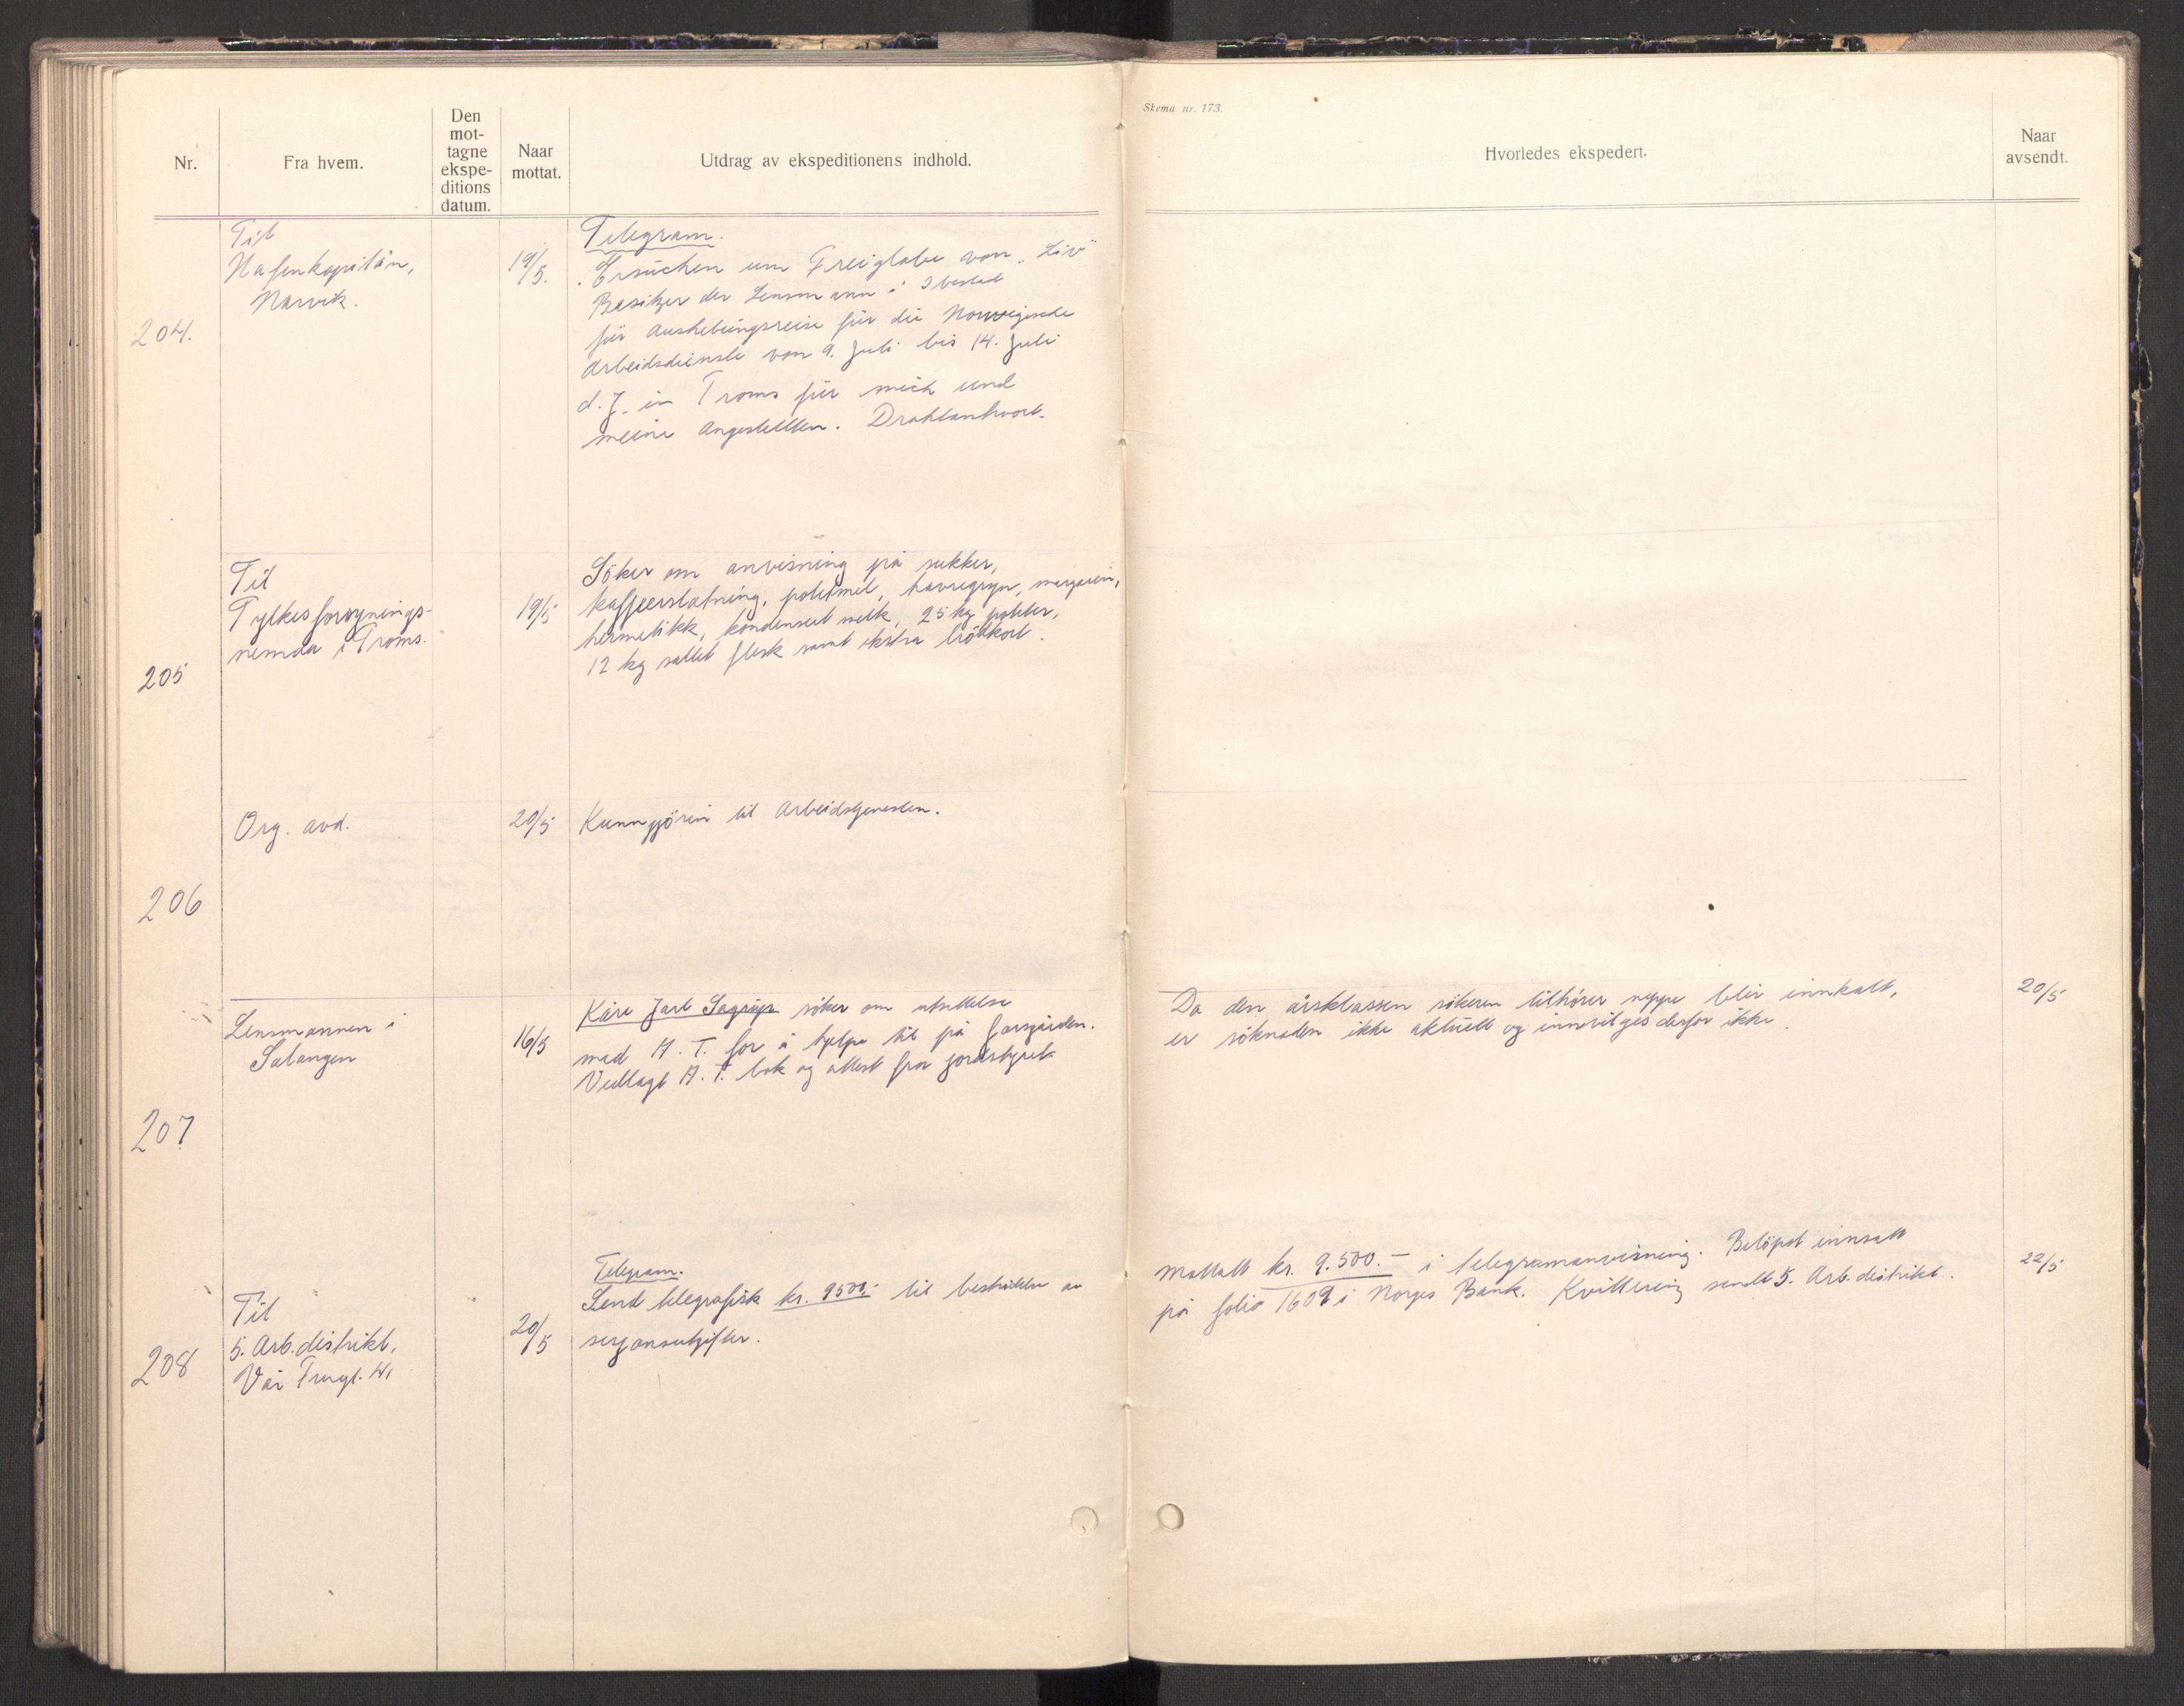 Skema nr. 173.
Nr.
Fra hvem.
Den
mot-
tagne
ekspe-
ditions
datum.
Naar
mottat.
Utdrag av ekspeditionens indhold.
Hvorledes ekspedert.
Naar
avsendt.
204.
Til
Hafenkapitän,
Narvik.
19/5.
Telegram.
"Ersüchen um Freiglabe von "Liv"
Besitzer der Lensmann i Ibestad
für Aushebüngsreise für die Norwegische
Arbeidsdienste von 9. Juli bis 14. Juli
d. J. in Troms für mich und
meine Angestellten. Drahtantwort.
205
Til
Fylkesforsynings-
nemda i Troms.
19/5
Söker om anvisning på sukker,
kaffeerstatning, potetmel, havregryn, margarin,
hermetikk, kondensert melk, 25 kg poteter,
12 kg saltet flesk samt ekstra brödkort.
206
Org. avd.
20/5
Kunngjörin til Arbeidstjenesten.
207
Lensmannen i
Salangen
16/5
Kåre Jarl söker om utsettelse
med A. T. for å hjelpe til på farsgården.
Vedlagt A. T. bok og attest fra jordstyret
Da den årsklassen sökeren tilhører neppe blir innkalt,
er söknaden ikke aktuell og innvilges derfor ikke.
20/5
208
Til
5. Arb.distrikt,
Vår
20/5
Telegram.
Send telegrafisk kr. 9500.- til bestridelse av
sesjonsutgifter.
Mottatt kr. 9.500.- i telegramanvisning. Belöpet innsatt
på folio 1609 i Norges Bank. Kvittering sendt 5. Arb.distrikt.
22/5